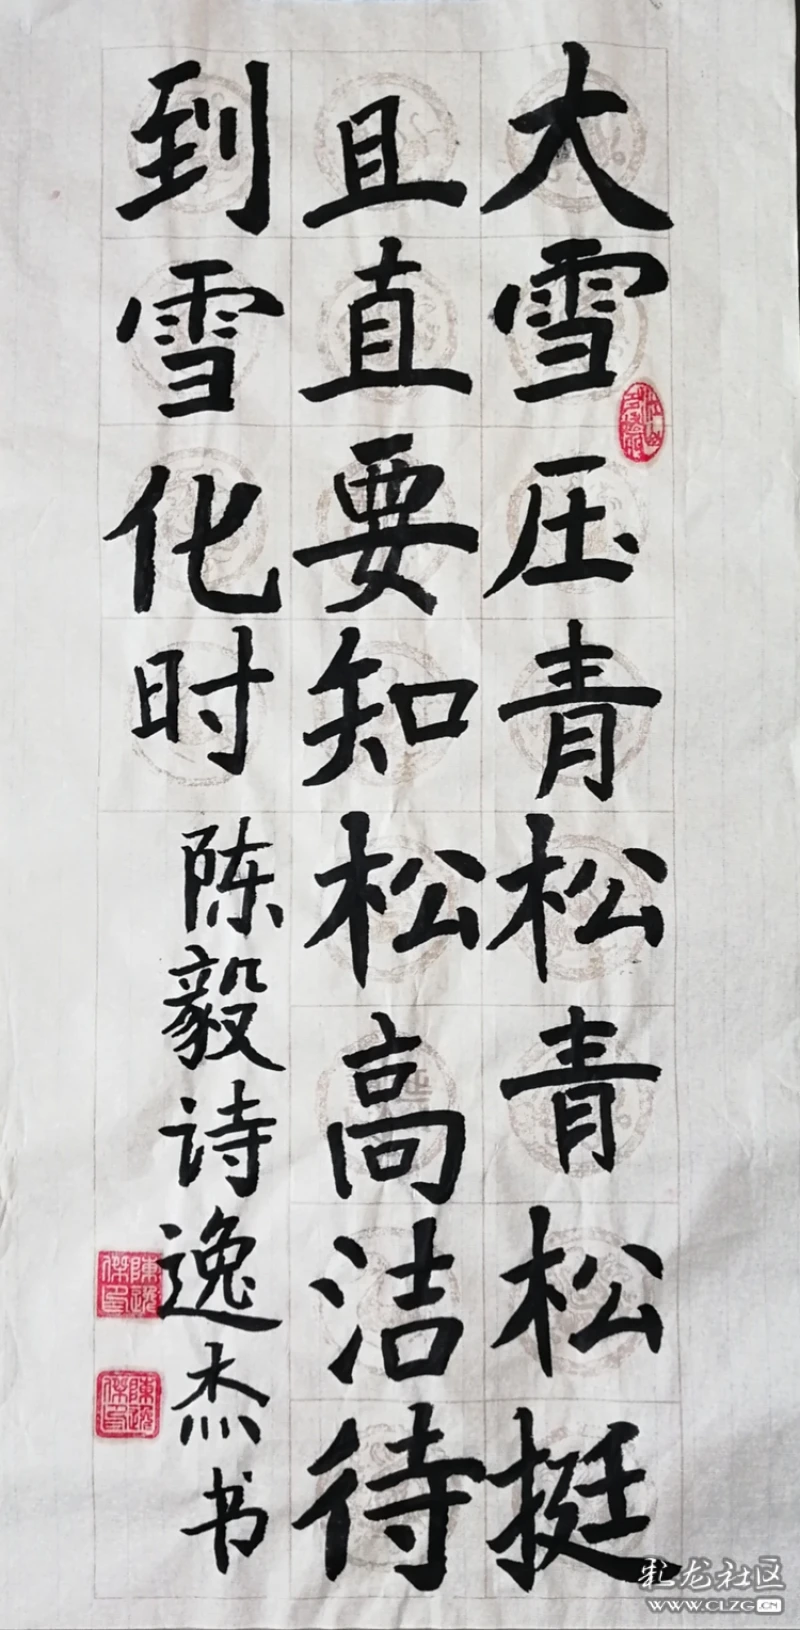 大雪压青松青松挺
且直要知松高洁待
到雪化时
陈毅诗逸杰书
陈逸杰印
陈逸杰印
彩龙社区
WWW.CLZG.CN